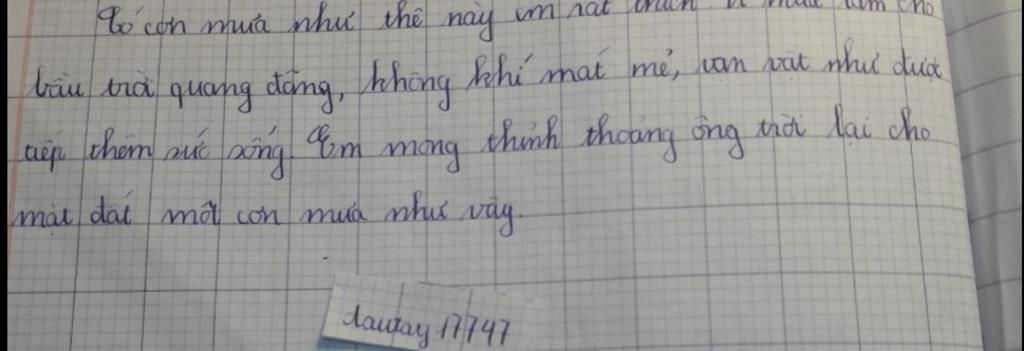 Có cơn mưa như thế này em rất thích vì mưa làm cho
bầu trời quang đãng, không khí mát mẻ, vạn vật như được
tiếp thêm sức sống. Em mong thỉnh thoảng ông trời lại cho
mặt đất một cơn mưa như vậy.
dautay17747